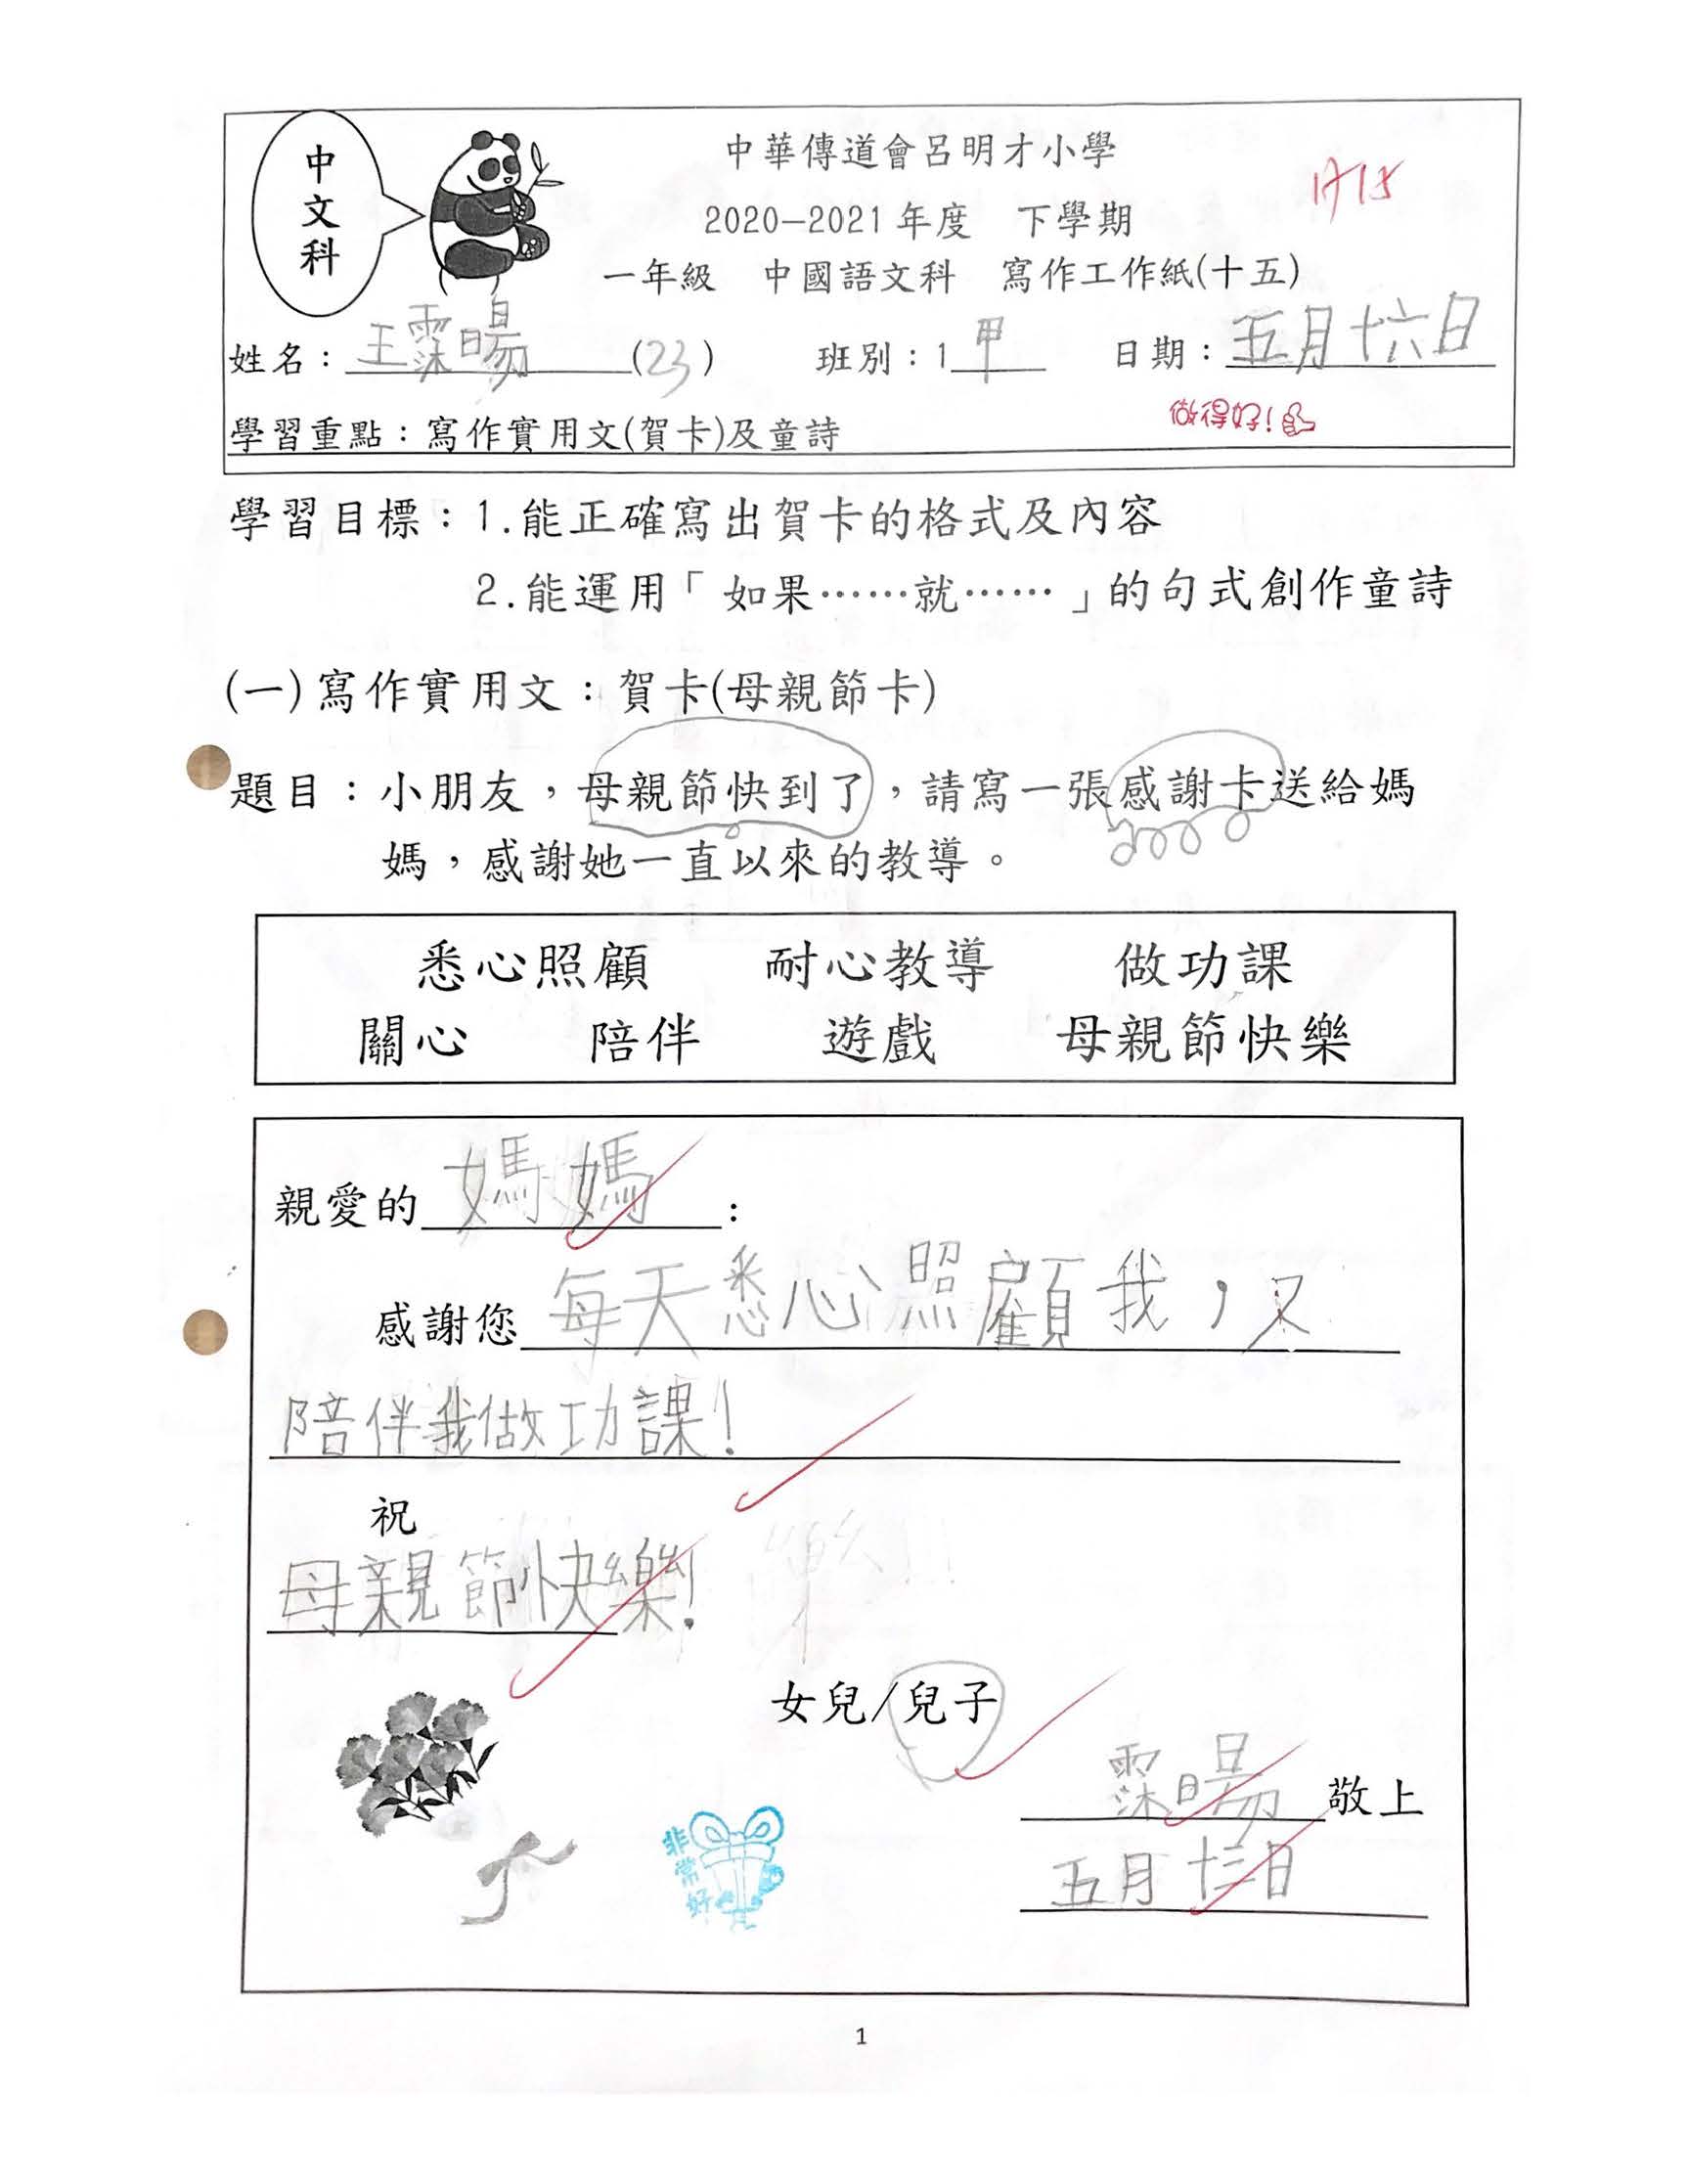 中文科
中華傳道會呂明才小學
2020-2021年度 下學期
一年級 中國語文科 寫作工作紙(十五)
姓名：王霂暘(23) 班別：1甲 日期：五月十六日
做得好！
學習重點：寫作實用文(賀卡)及童詩
學習目標：1.能正確寫出賀卡的格式及內容
2.能運用「如果……就……」的句式創作童詩
(一)寫作實用文：賀卡(母親節卡)
題目：小朋友，母親節快到了，請寫一張感謝卡送給媽
媽，感謝她一直以來的教導。
悉心照顧 耐心教導 做功課
關心 陪伴 遊戲 母親節快樂
親愛的媽媽：
感謝您每天悉心照顧我，又
陪伴我做功課！
祝
母親節快樂！
女兒/兒子
霂暘敬上
五月十三日
非常好
1